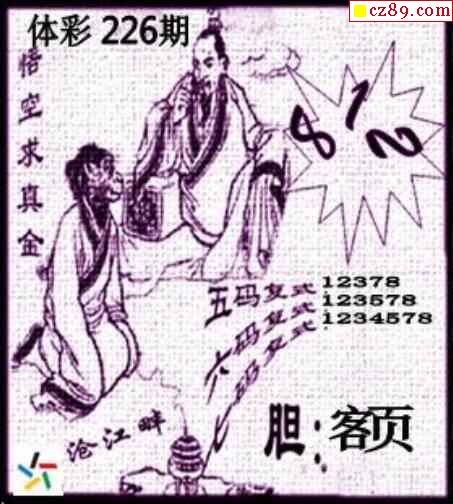 cz89.com
体彩 226期
悟空求真金
8 1 2
五码复式:12378
六码复式:123578
七码复式:1234578
胆:客页
沧江畔